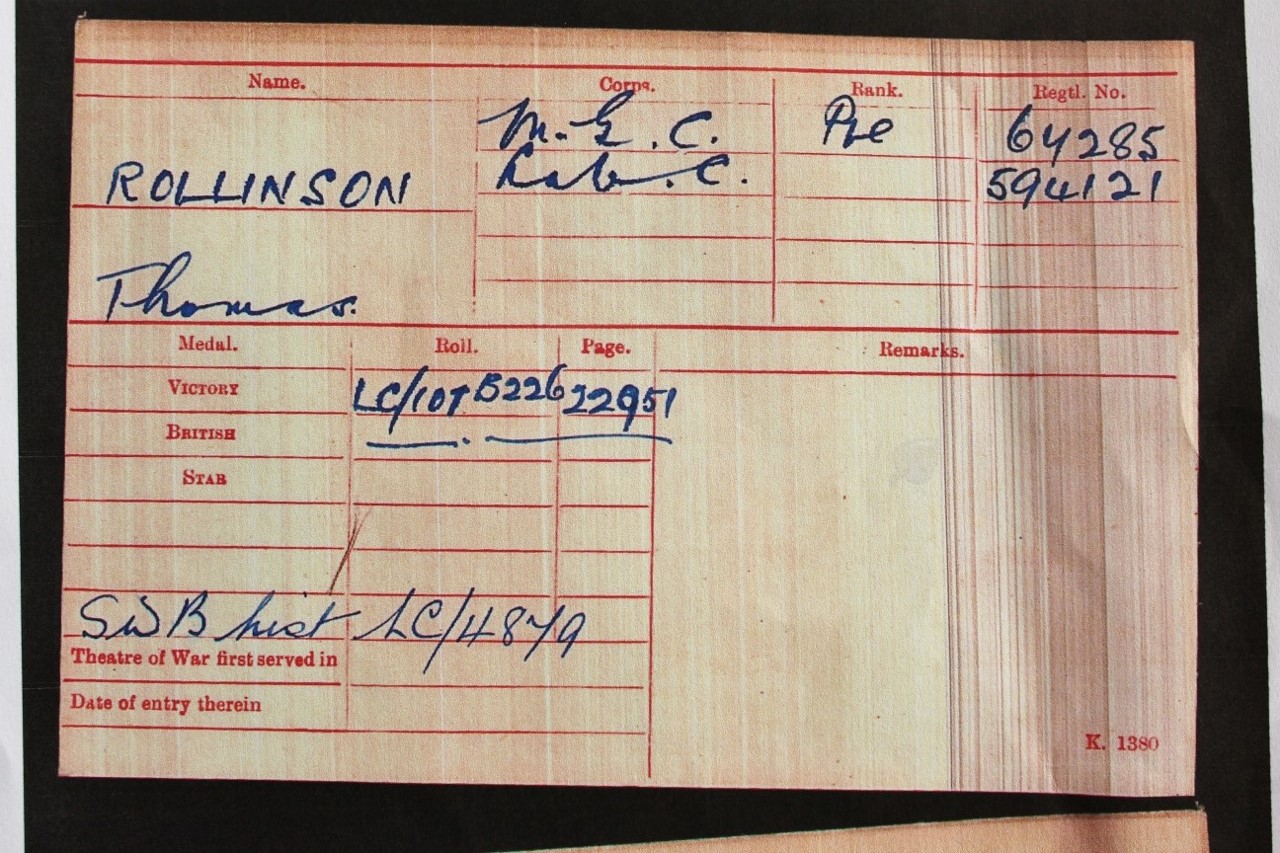 Name. Corps. Rank. Regtl. No.
M.G.C. Pte 64285
ROLLINSON Lab. C. 594121
Thomas.
Medal. Roll. Page. Remarks.
VICTORY LC/107 B226 22951
BRITISH
STAR
SWB list LC/4879
Theatre of War first served in
Date of entry therein
K. 1380